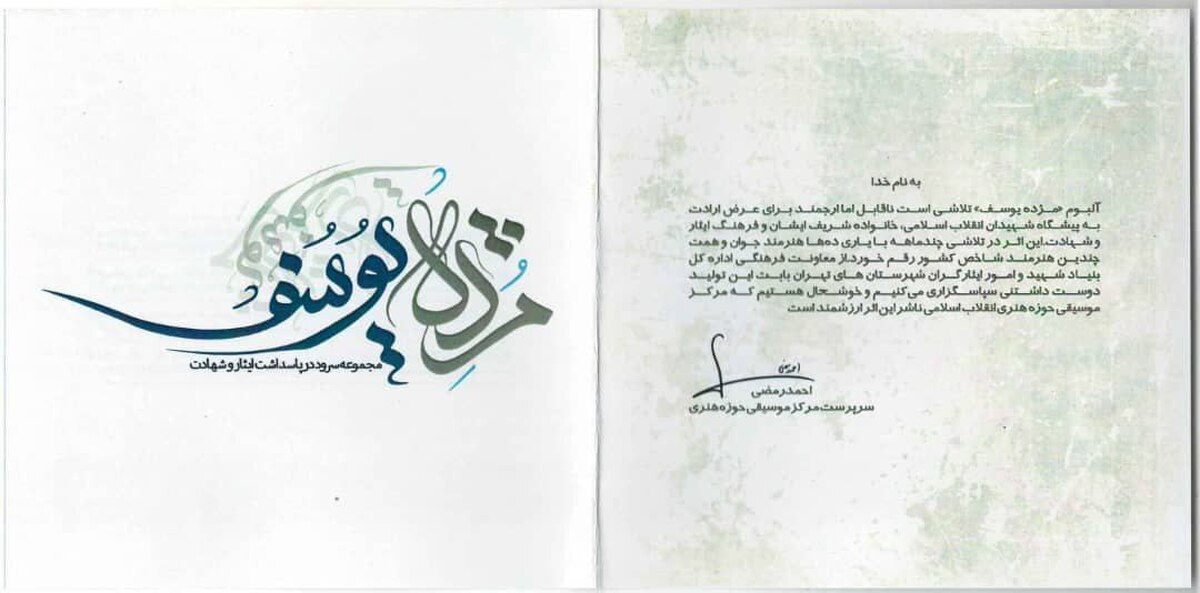 به نام خدا
آلبوم «مژده یوسف» تلاشی است ناقابل اما ارجمند برای عرض ارادت
به پیشگاه شهیدان انقلاب اسلامی، خانواده شریف ایشان و فرهنگ ایثار
و شهادت.این اثر در تلاشی چندماهه با یاری ده‌ها هنرمند جوان و همت
چندین هنرمند شاخص کشور رقم خورد.از معاونت فرهنگی اداره کل
بنیاد شهید و امور ایثارگران شهرستان های تهران بابت این تولید
دوست داشتنی سپاسگزاری می‌کنیم و خوشحال هستیم که مرکز
موسیقی حوزه هنری انقلاب اسلامی ناشر این اثر ارزشمند است
احمدرمضی
سرپرست مرکز موسیقی حوزه هنری
مُژدِهٔ یوُسُف
مجموعه سرود در پاسداشت ایثار و شهادت